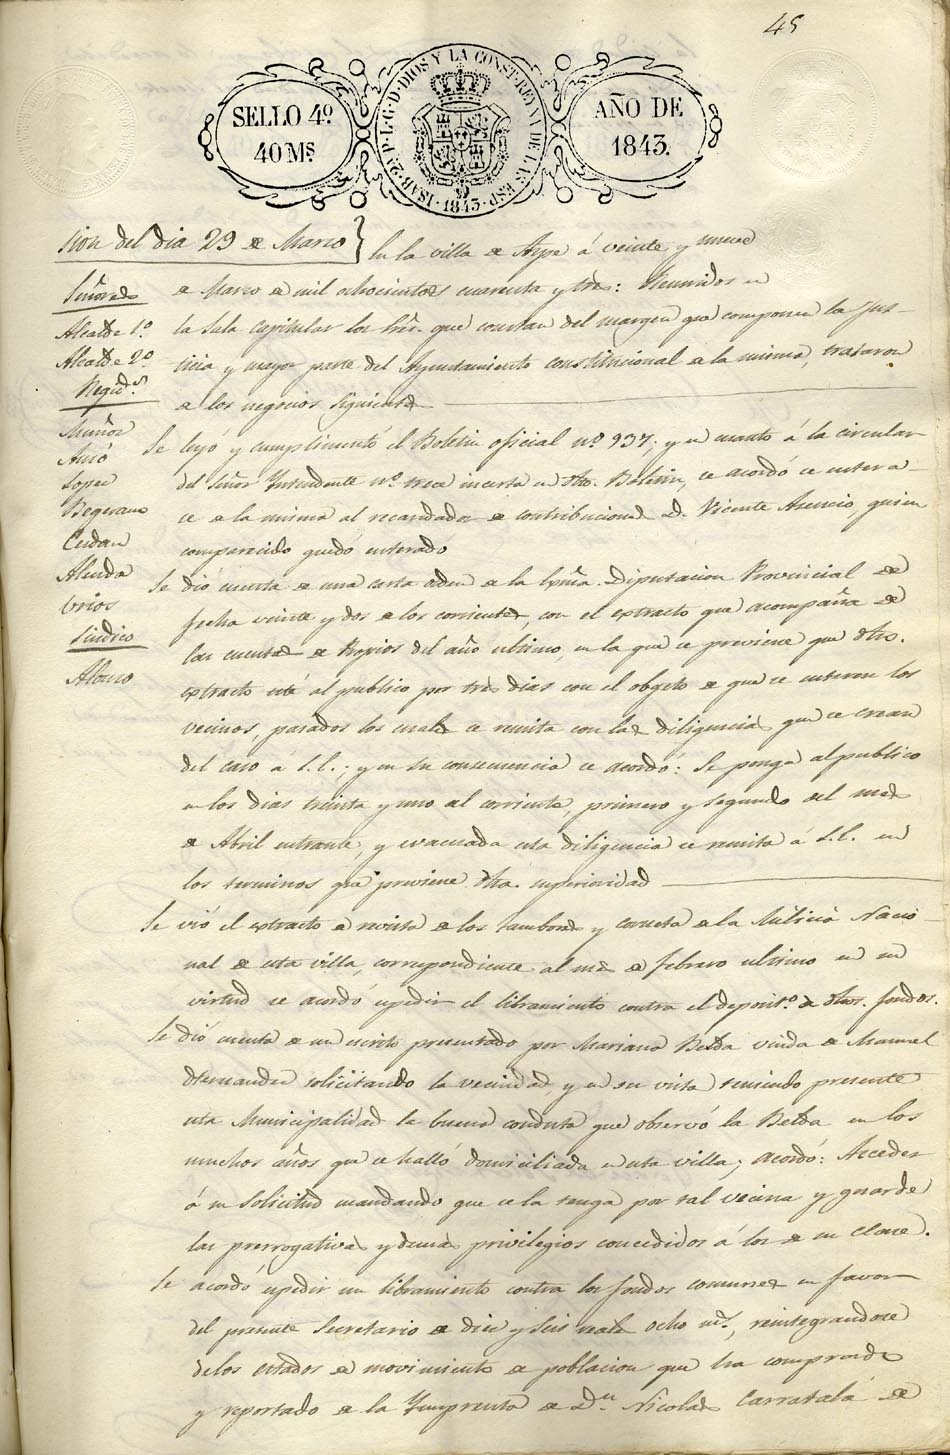 45
SELLO 4º
40 Ms.
ISAB. 2ª P. L. G. D. DIOS Y LA CONST. REYNA DE LAS ESP.
1843
AÑO DE
1843.
sion del dia 29 de Marzo
Señores
Alcalde 1º
Alcalde 2º
Regid.s
Muñoz
Amó
Lopez
Begerano
Cerdan
Alenda
Brios
Sindico
Alonso
En la villa de Aspe á veinte y nueve
de Marzo de mil ochocientos cuarenta y tres: Reunidos en
la Sala Capitular los Sres. que constan del margen que componen la Jus-
ticia y mayor parte del Ayuntamiento constitucional de la misma, trataron
de los negocios siguientes
Se leyó y cumplimentó el Boletin oficial nº 937; y en cuanto á la circular
del Señor Yntendente nº trece inserta en dho. Boletin, se acordó se entera-
se de la misma al recaudador de contribuciones D. Vicente Asencio, quien
comparecido quedó enterado
Se dió cuenta de una carta orden de la Exma. Diputacion Provincial de
fecha veinte y dos de los corrientes, con el extracto que acompaña de
las cuentas de Propios del año ultimo, en la que se previene que dho.
extracto esté al publico por tres dias con el objeto de que se enteren los
vecinos, pasados los cuales se remita con las diligencias que se crean
del caso á S.E.; y en su consecuencia se acordó: Se ponga al publico
en los dias treinta y uno del corriente, primero y segundo del mes
de Abril entrante, y evacuada esta diligencia se remita á S.E. en
los terminos que previene dha. superioridad
Se vió el extracto de revista de los tambores y corneta de la Milicia Nacio-
nal de esta villa, correspondiente al mes de febrero ultimo en su
virtud se acordó espedir el libramiento contra el deposit.º de dhos. fondos.
Se dió cuenta de un escrito presentado por Mariana Belda viuda de Manuel
Hernandez solicitando la vecindad, y en su vista teniendo presente
esta Municipalidad la buena conducta que observó la Belda en los
muchos años que se halló domiciliada en esta villa; acordó: Acceder
á su solicitud mandando que se la tenga por tal vecina y guarde
las prerrogativas y demas privilegios concedidos á los de su clase.
Se acordó espedir un libramiento contra los fondos comunes en favor
del presente Secretario de diez y seis reales ocho ms., reintegrandose
de los estados de movimiento de poblacion que ha comprado
y reportado de la Ymprenta de D.n Nicolas Carratalá de